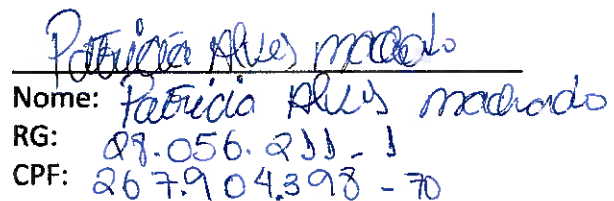 Patricia Alves machado
Nome: Patricia Alves machado
RG: 28.056.211-1
CPF: 267.904.398-70